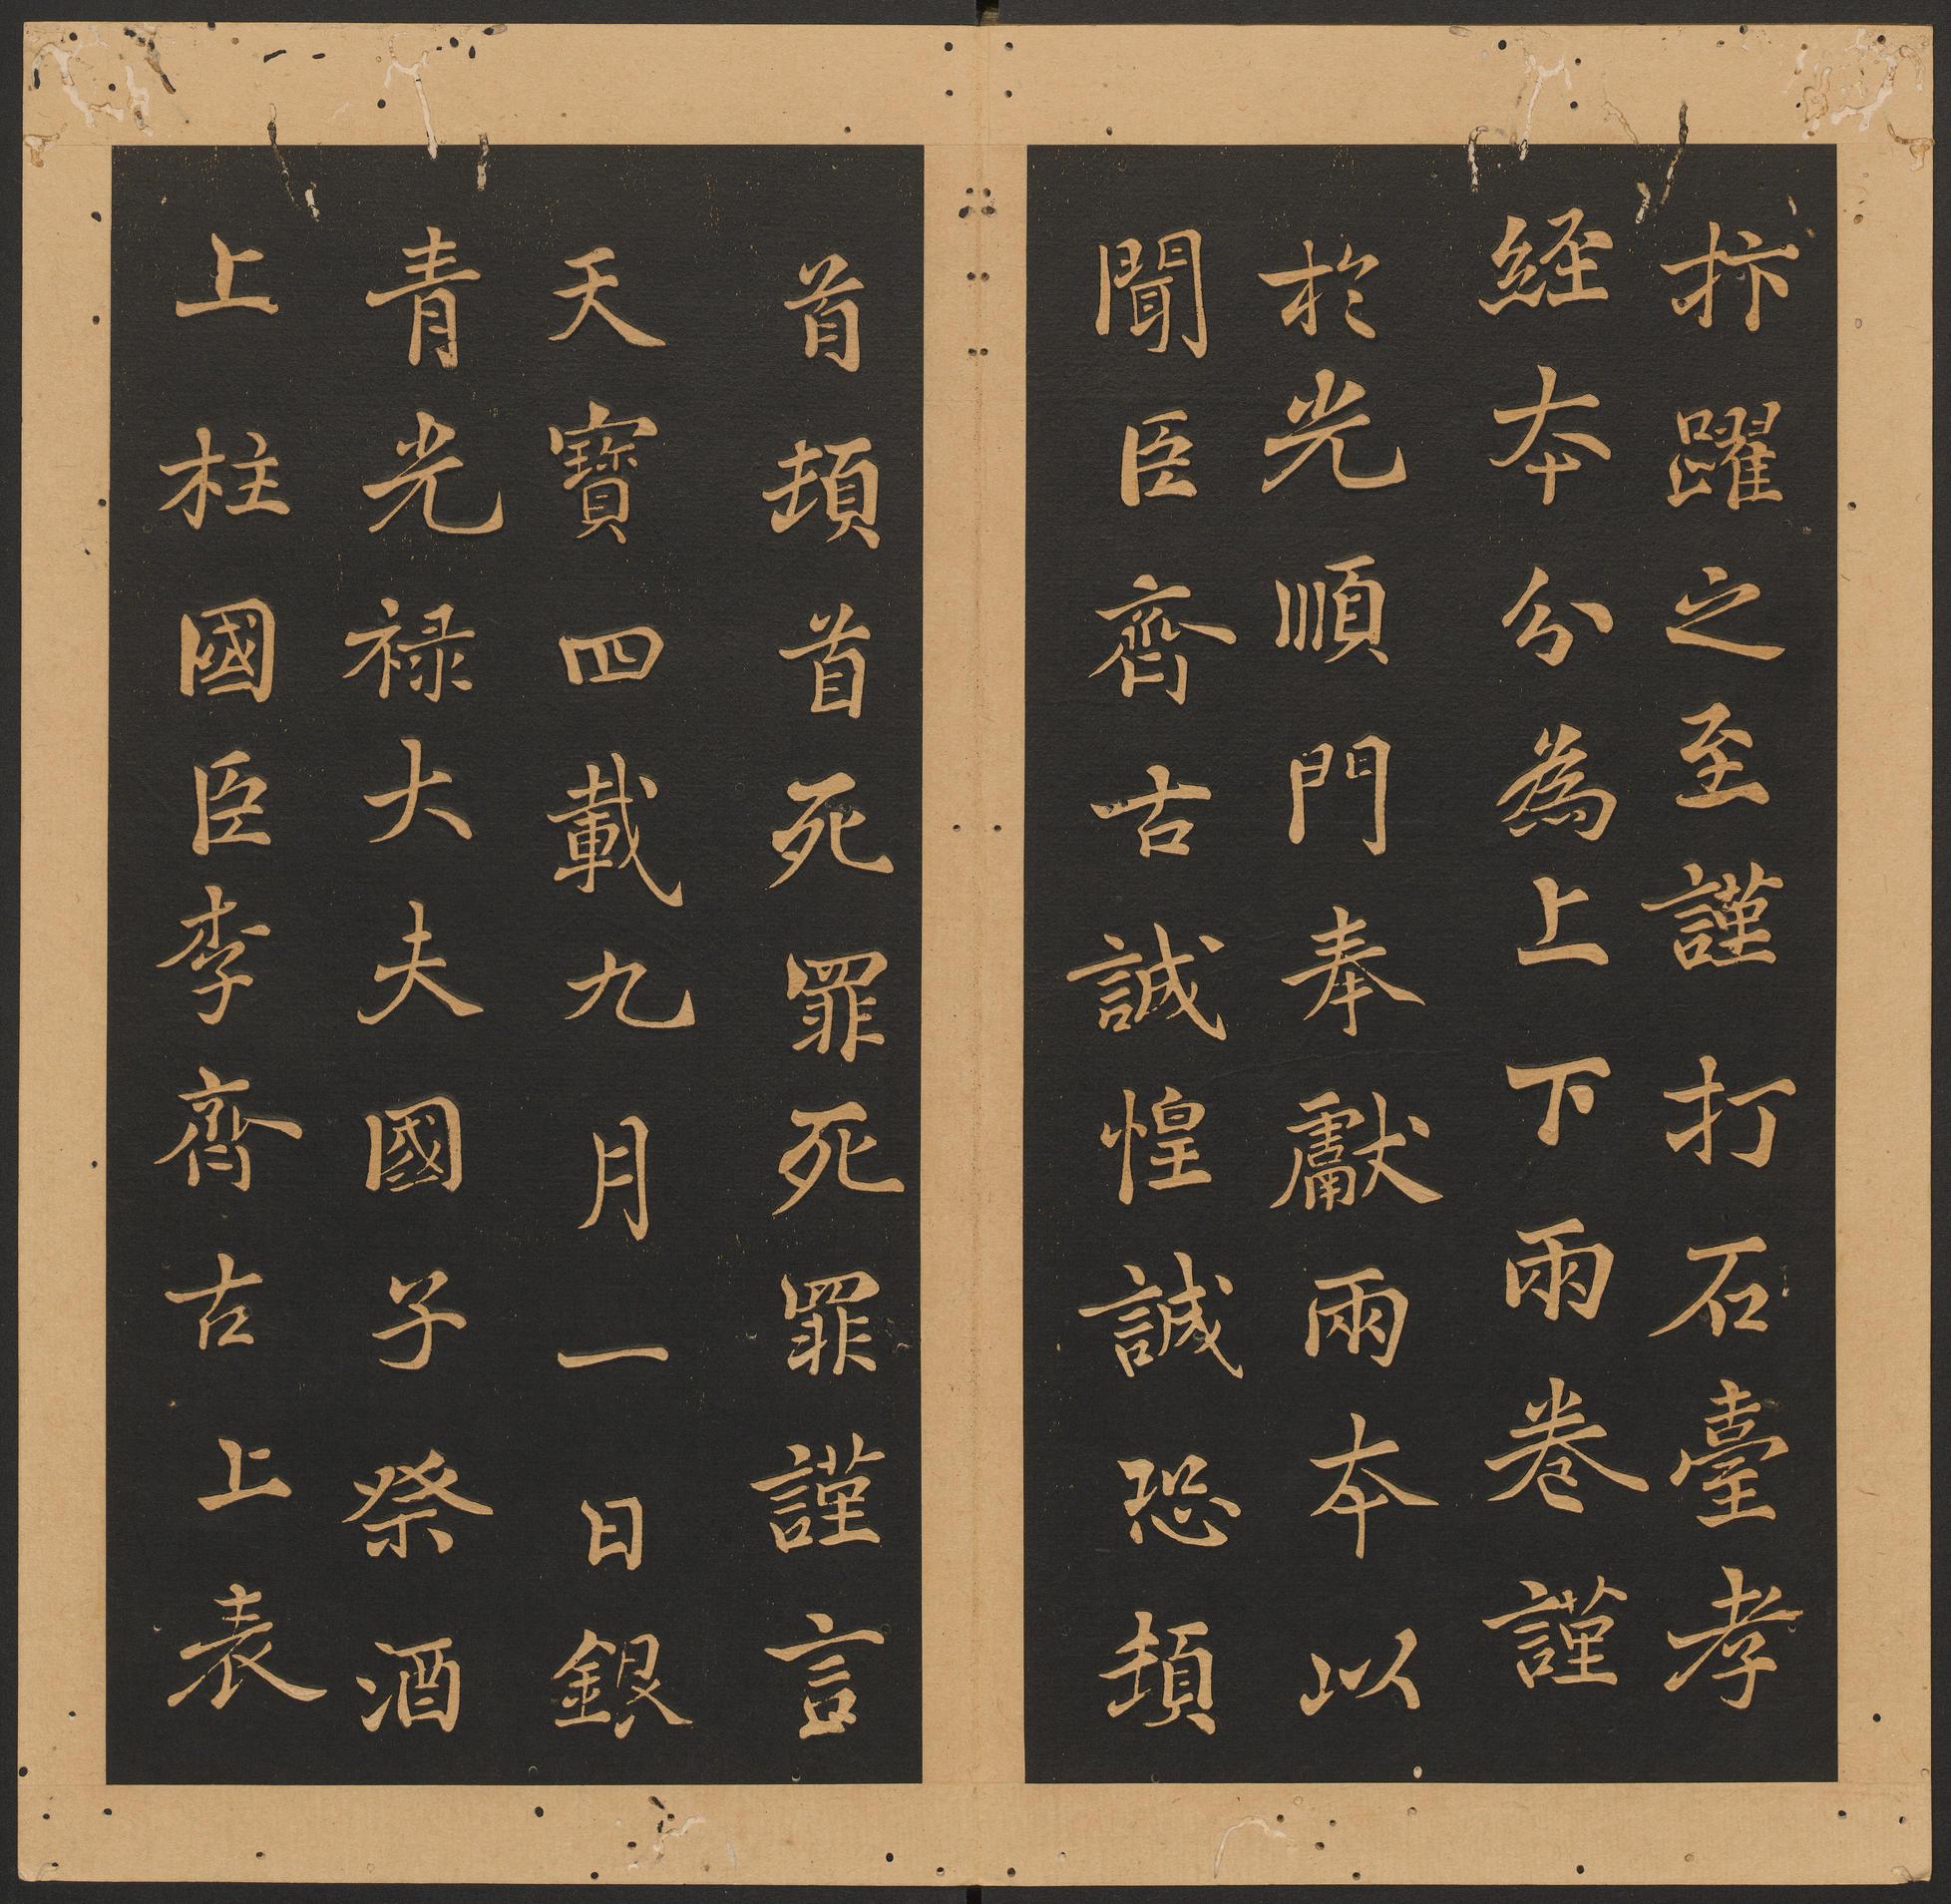 抃躍之至謹打石臺孝
經本分為上下兩卷謹
於光順門奉獻兩本以
聞臣齊古誠惶誠恐頓
首頓首死罪死罪謹言
天寶四載九月一日銀
青光祿大夫國子祭酒
上柱國臣李齊古上表